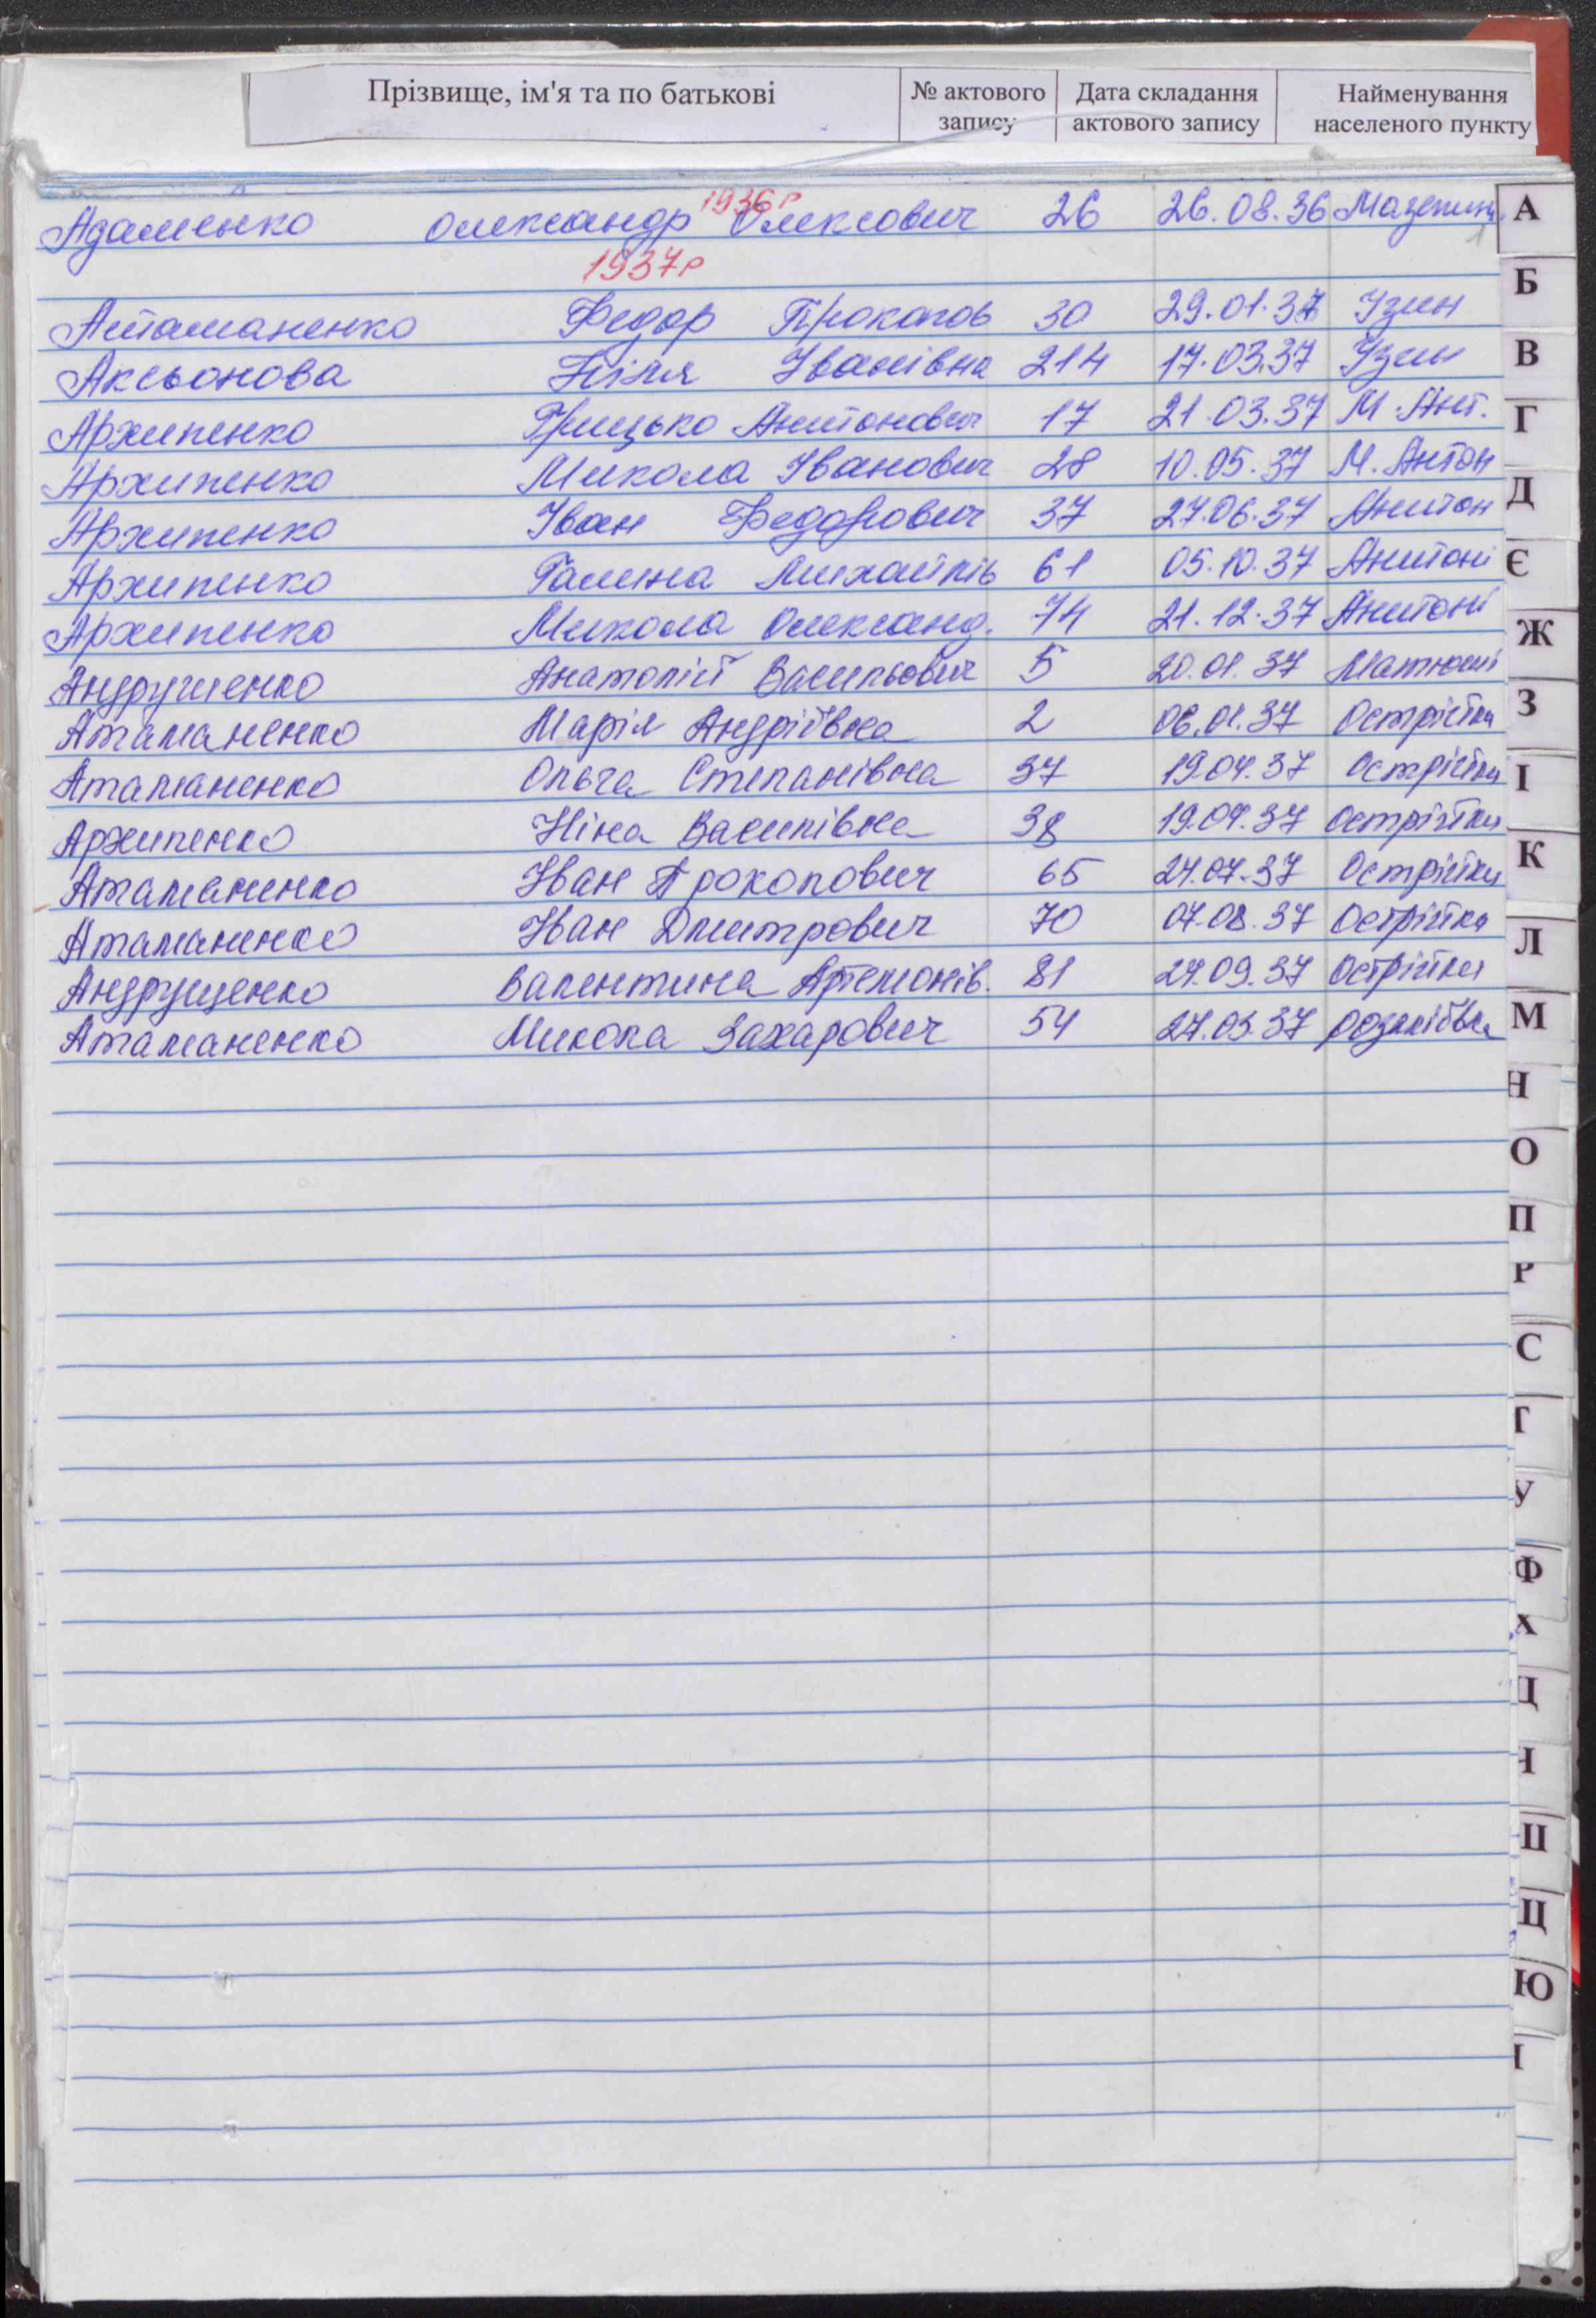 Прізвище, ім'я та по батькові № актового запису Дата складання актового запису Найменування населеного пункту
1936р
Адаменко Олександр Олексович 26 26.08.36 Мазепинц.
1
1937р
Атаманенко Федор Прокопов 30 29.01.37 Узин
Аксьонова Ніля Іванівна 214 17.03.37 Узин
Архипенко Грицько Антонович 17 21.03.37 М.Ант.
Архипенко Микола Іванович 28 10.05.37 М.Антон
Архипенко Іван Федорович 37 27.06.37 Антон
Архипенко Галина Михайлів 61 05.10.37 Антоні
Архипенко Микола Олександ. 74 21.12.37 Антоні
Андрушенко Анатолій Васильович 5 20.01.37 Матюші
Атаманенко Марія Андріївна 2 06.01.37 Острійки
Атаманенко Ольга Степанівна 37 19.04.37 Острійки
Архипенко Ніна Василівна 38 19.04.37 Острійки
Атаманенко Іван Прокопович 65 24.07.37 Острійки
Атаманенко Іван Дмитрович 70 07.08.37 Острійки
Андрущенко Валентина Артемонів. 81 24.09.37 Острійки
Атаманенко Микола Захарович 54 27.03.37 Розаліївка
А
Б
В
Г
Д
Є
Ж
З
І
К
Л
М
Н
О
П
Р
С
Т
У
Ф
Х
Ц
Ю